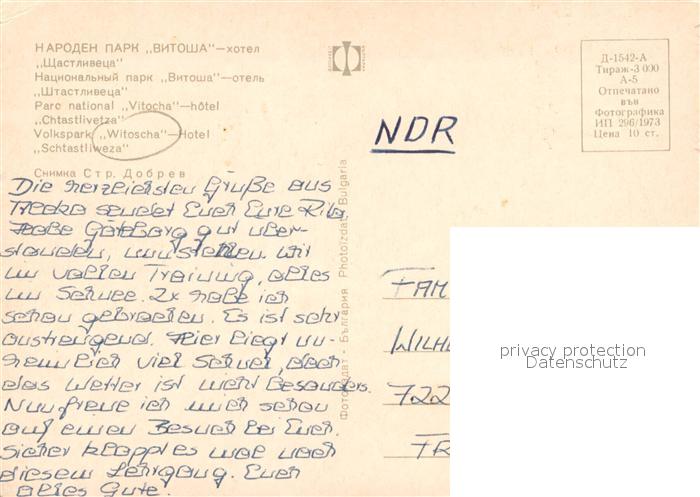 НАРОДЕН ПАРК „ВИТОША"—хотел
„Щастливеца"
Национальный парк „Витоша"—отель
„Штастливеца"
Parc national „Vitocha"—hôtel
„Chtastlivetza"
Volkspark „Witoscha"—Hotel
„Schtastliweza"
Снимка Стр. Добрев
Д-1542-А
Тираж-3 000
А-5
Отпечатано
във
Фотографика
ИП 296/1973
Цена 10 ст.
NDR
Die herzlichsten Grüße aus
sendet Euch Eure
Habe gut über-
standen, nun stehen wir
im vollen Training, alles
im Schnee. 2x habe ich
schon gebrochen. Es ist sehr
anstrengend. Hier liegt un-
heimlich viel Schnee, doch
das Wetter ist nicht besonders.
Nun freue ich mich schon
auf einen Besuch bei Euch.
Sicher klappt es mal nach
diesem Lehrgang. Euch
alles Gute.
Фотоиздат - България Photoizdat, Bulgaria
FAM
WILH
722
FR
privacy protection
Datenschutz